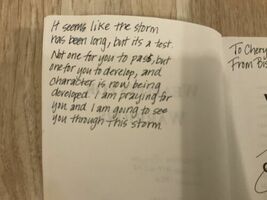 It seems like the storm
has been long, but its a test.
Not one for you to pass, but
one for you to develop, and
character is now being
developed. I am praying for
you and I am going to see
you through this storm
To Chery
From Bis